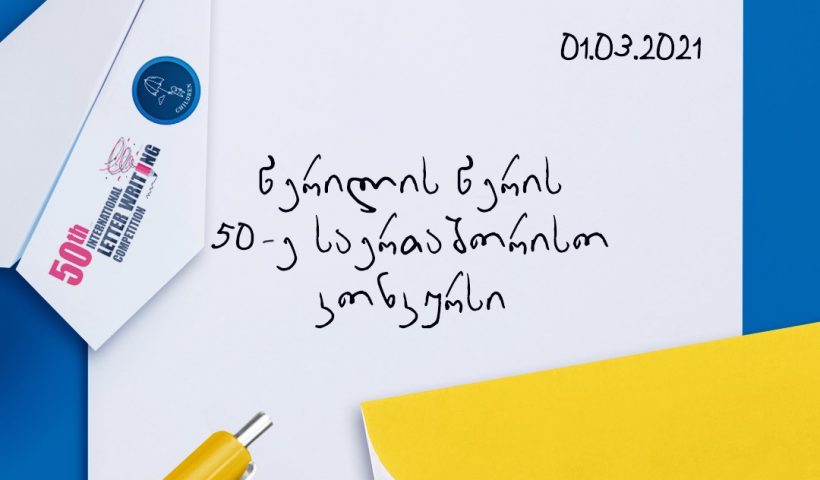 01.03.2021
CHILDREN
50th
INTERNATIONAL
LETTER WRITING
COMPETITION
წერილის წერის
50-ე საერთაშორისო
კონკურსი